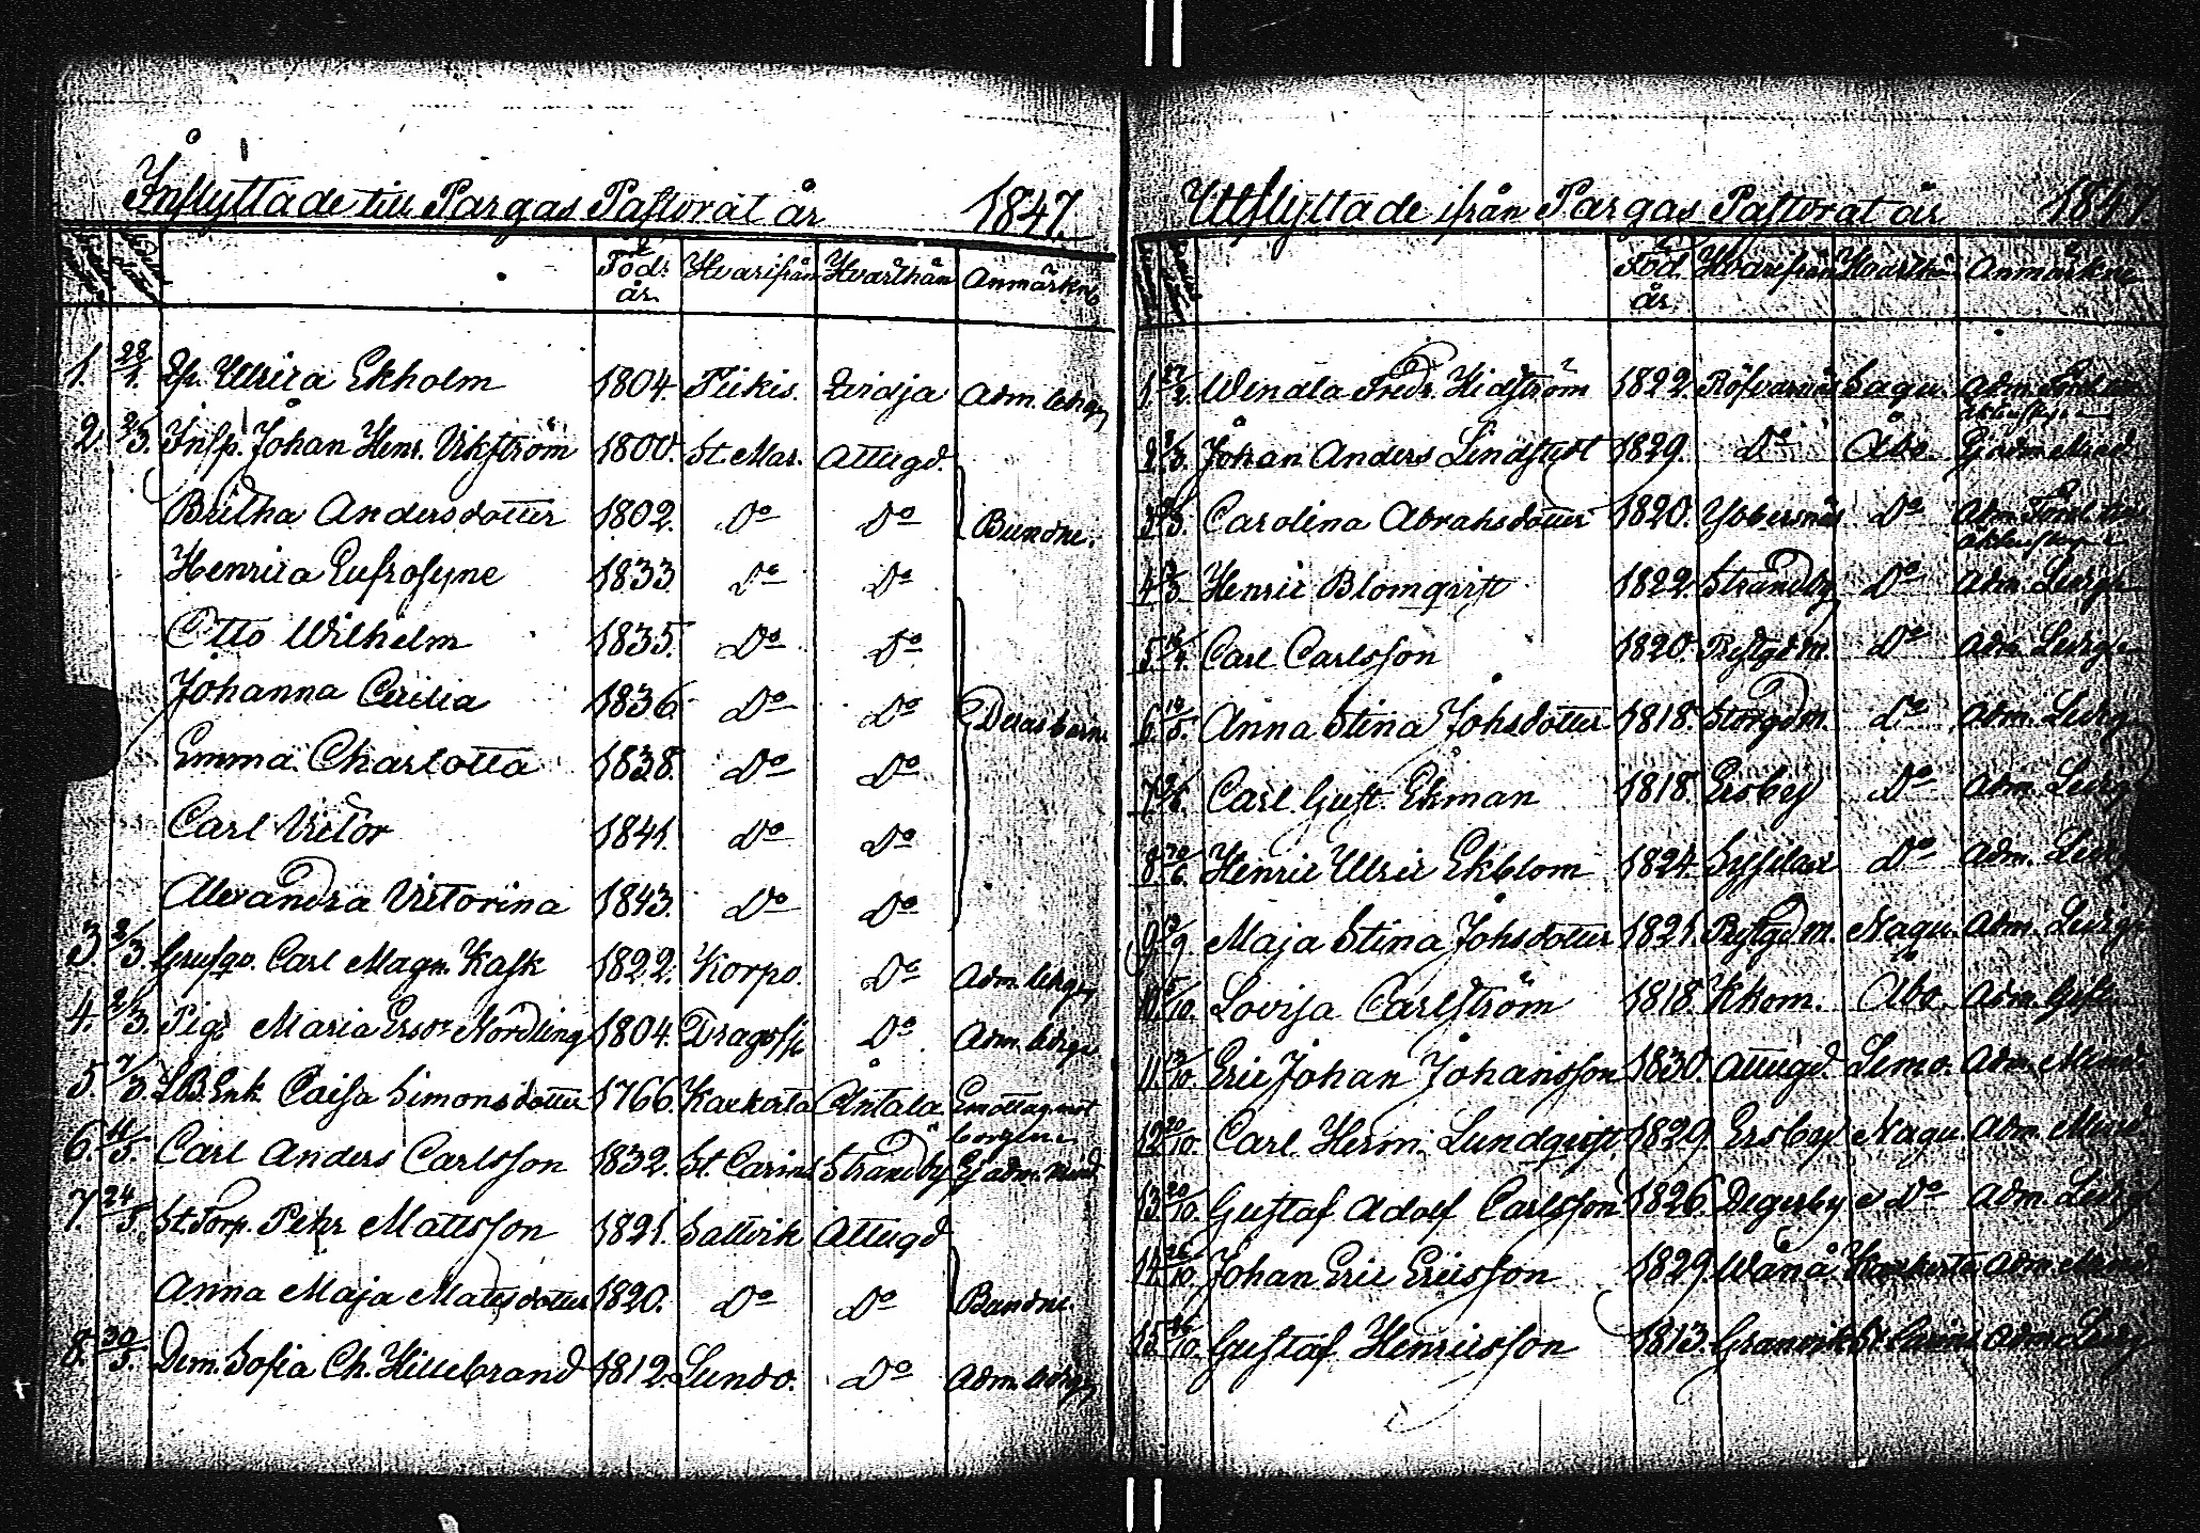 Inflyttade till Pargas Pastorat år 1847.
Föd: år. Hvarifrån Hvarthän Anmärkn:
1. 28/1. Ulrica Ekholm 1804. Piikis. Qvidja Adm. ledig
2. 2/3. Insp. Johan Henr. Vikström 1800. St. Mar. Attugd.
Britha Andersdotter 1802. Do Do Bundne.
Henrica Eufrosyne 1833 Do Do
Otto Wilhelm 1835. Do Do
Johanna Cecilia 1836. Do Do Deras barn
Emma Charlotta 1838. Do Do
Carl Victor 1841. Do Do
Alexandra Victorina 1843. Do Do
3. 2/3. Carl Magn. Kask 1822. Korpo. Do Adm. ledig
4. 2/3. Pig. Maria Ersdr Nordling 1804. Dragsfj. Do Adm. ledig
5. 7/3. Enk. Caisa Simonsdotter 1766. Karkota Antala
6. 11/5. Carl Anders Carlsson 1832. St. Carins Strandby Ej adm.
7. 24/5. St. Torp. Pehr Mattsson 1821. Sattvik Attugd
Anna Maja Matsdotter 1820. Do Do Bundne.
8. 30/5. Dem. Sofia Ch. Hillebrand 1812. Lundo. Do Adm. ledig
Utflyttade ifrån Pargas Pastorat år 1847.
Föd. år. Hvarifrån Hvarthän Anmärkn:
1. Wendla Fredr. Hidström 1822. Sagu. Adm.
2. Johan Anders Lindstedt 1829. Do Åbo
3. Carolina Abrahsdotter 1820. Do Adm.
4. Henric Blomqvist 1822. Strandby Do Adm. Ledig
5. Carl Carlsson 1820. Prestgdm. Do Adm. Ledig
6. 14/5. Anna Stina Johsdotter 1818. Storgdm. Do Adm. Ledig
7. Carl Gust. Ekman 1818. Ersby Do Adm. Ledig
8. Henric Ulric Ekblom 1824. Do Adm. Ledig
9. Maja Stina Johsdotter 1821. Prestgdm. Nagu. Adm. Ledig
10. Lovisa Carlström 1818. Kkom. Åbo Adm. Gift
11. Eric Johan Johansson 1830. Attugd. Lemo. Adm.
12. 20/10. Carl Herm. Lundqvist 1829. Ersby Nagu. Adm.
13. 20/10. Gustaf Adolf Carlsson 1826. Degerby Do Adm. Ledig
14. 26/10. Johan Eric Ericsson 1829. Wånå Adm.
15. Gustaf Henricsson 1813. Granvik St. Carins Adm. Ledig